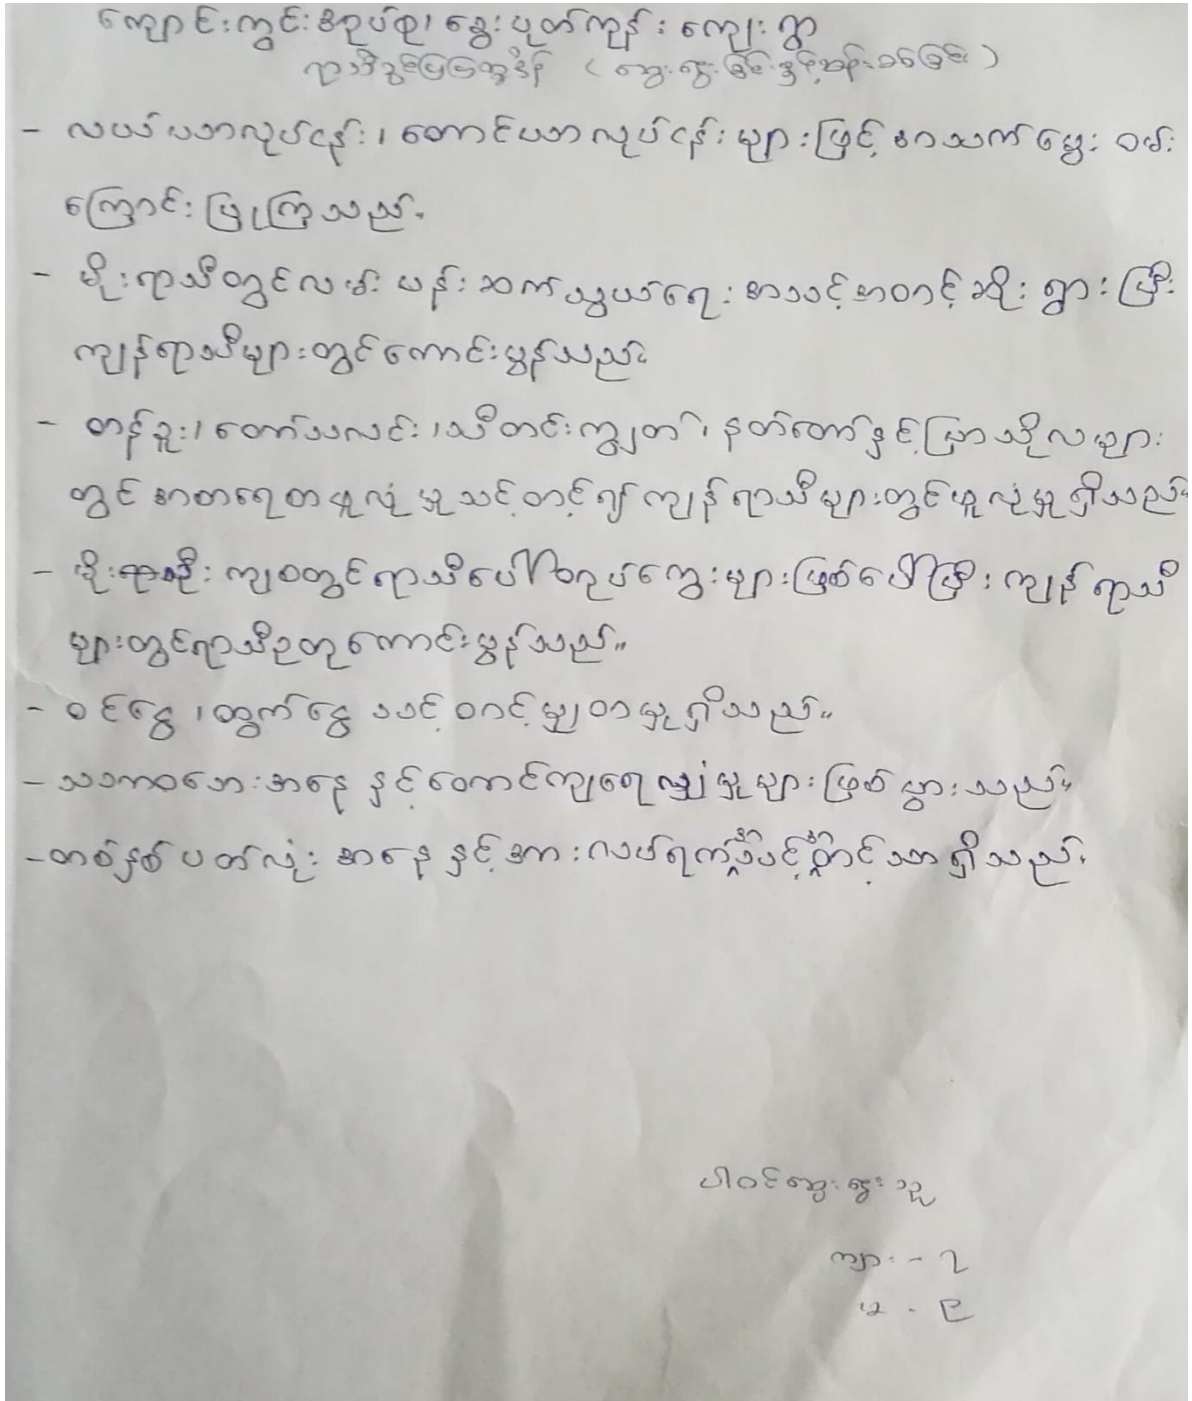 ကျောင်းကွင်းအုပ်စု၊ ခွေးပုတ်ကုန်း ကျေးရွာ
ရာသီခွင်ပြပြက္ခဒိန် (ဆွေးနွေးခြင်းနှင့်ဆန်းစစ်ခြင်း)
- လယ်ယာလုပ်ငန်း၊ တောင်ယာလုပ်ငန်းများဖြင့် အသက်မွေး ဝမ်း
ကြောင်းပြုကြသည်။
- မိုးရာသီတွင်လမ်းပန်းဆက်သွယ်ရေး အသင့်အတင့်ဆိုးရွားပြီး
ကျန်ရာသီများတွင်ကောင်းမွန်သည်။
- တန်ခူး၊ တော်သလင်း၊ သီတင်းကျွတ်၊ နတ်တော်နှင့်ပြာသိုလများ
တွင် အစားရေစာဖူလုံမှုသင့်တင့်၍ ကျန်ရာသီများတွင်ဖူလုံမှုရှိသည်။
- မိုးဦးကျစတွင်ရာသီပေါ်တုပ်ကွေးများဖြစ်ပေါ်ပြီး ကျန်ရာသီ
များတွင်ရာသီဥတုကောင်းမွန်သည်။
- ဝင်ငွေ၊ ထွက်ငွေ သင့်တင့်မျှတမှုရှိသည်။
- သဘာဝဘေးအနေနှင့်တောင်ကျရေလျှံမှုများဖြစ်ပွားသည်။
- တစ်နှစ်ပတ်လုံးအနေနှင့်အားလပ်ရက်သင့်တင့်စွာရှိသည်။
ပါဝင်ဆွေးနွေးသူ
ကျား - ၇
မ - ၉